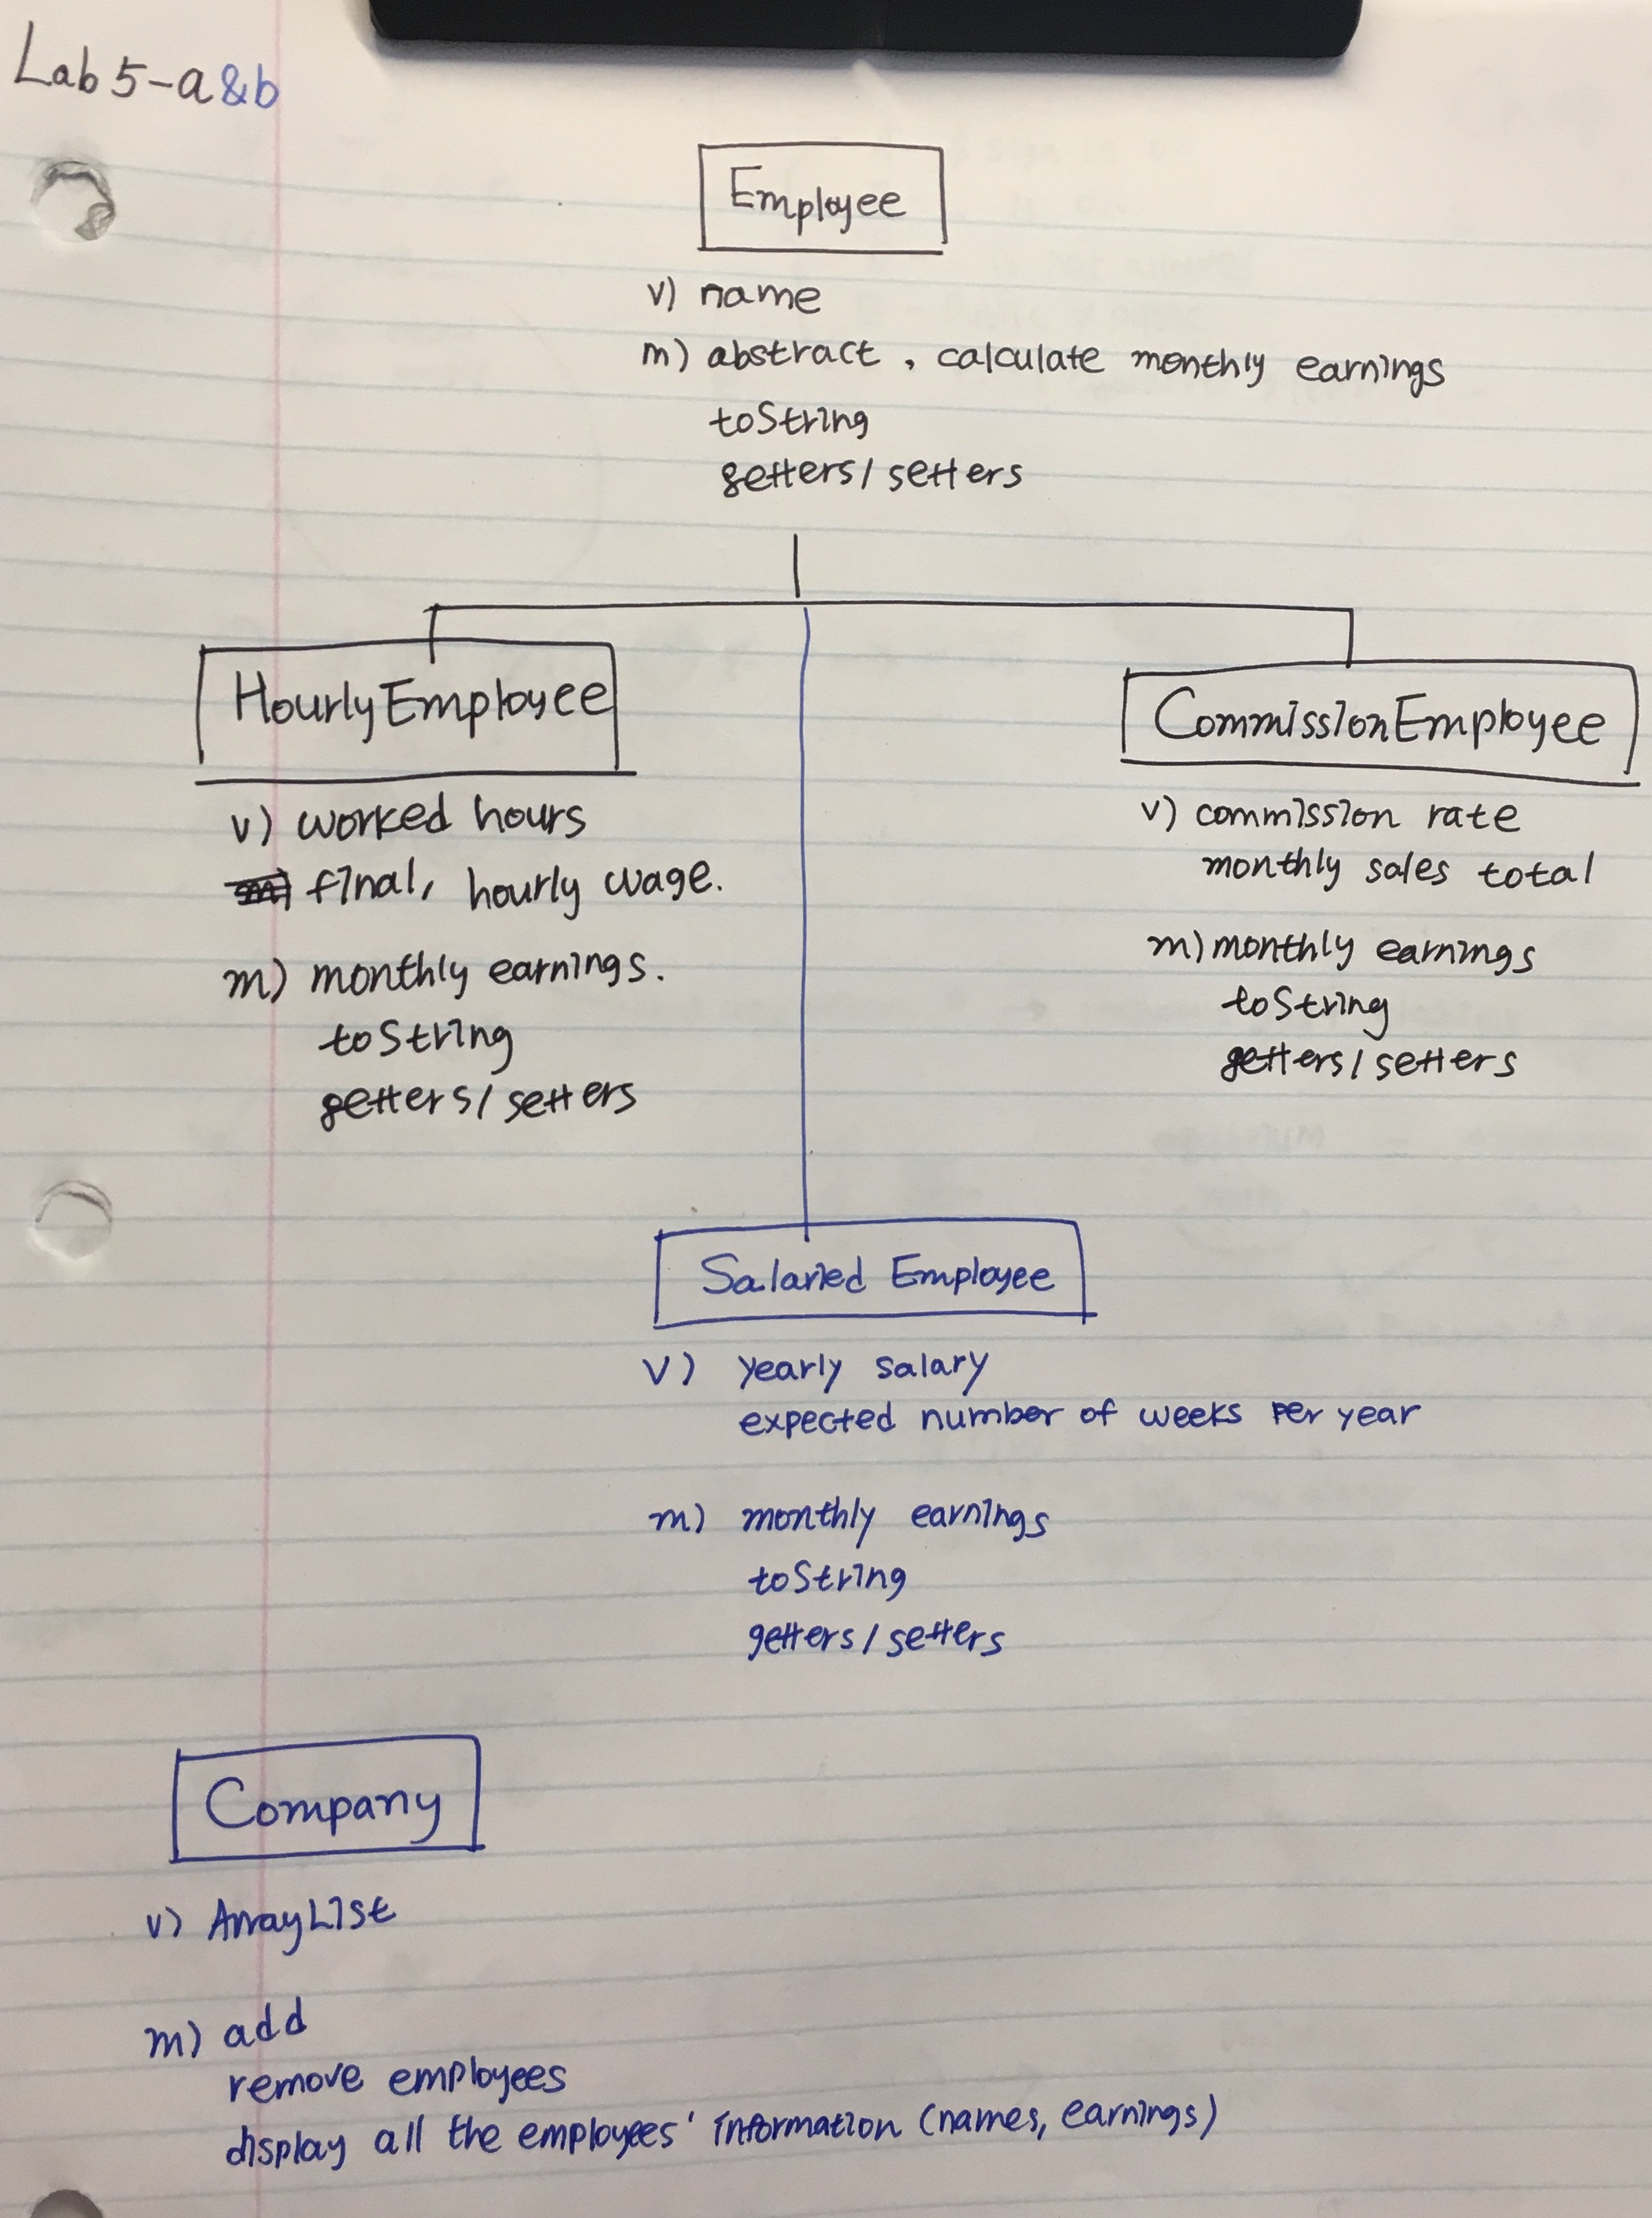 Lab 5-a&b
Employee
v) name
m) abstract, calculate monthly earnings
toString
getters/setters
HourlyEmployee
v) worked hours
final, hourly wage.
m) monthly earnings.
toString
getters/setters
CommissionEmployee
v) commission rate
monthly sales total
m) monthly earnings
toString
getters/setters
Salaried Employee
v) yearly salary
expected number of weeks per year
m) monthly earnings
toString
getters/setters
Company
v) ArrayList
m) add
remove employees
display all the employees' information (names, earnings)